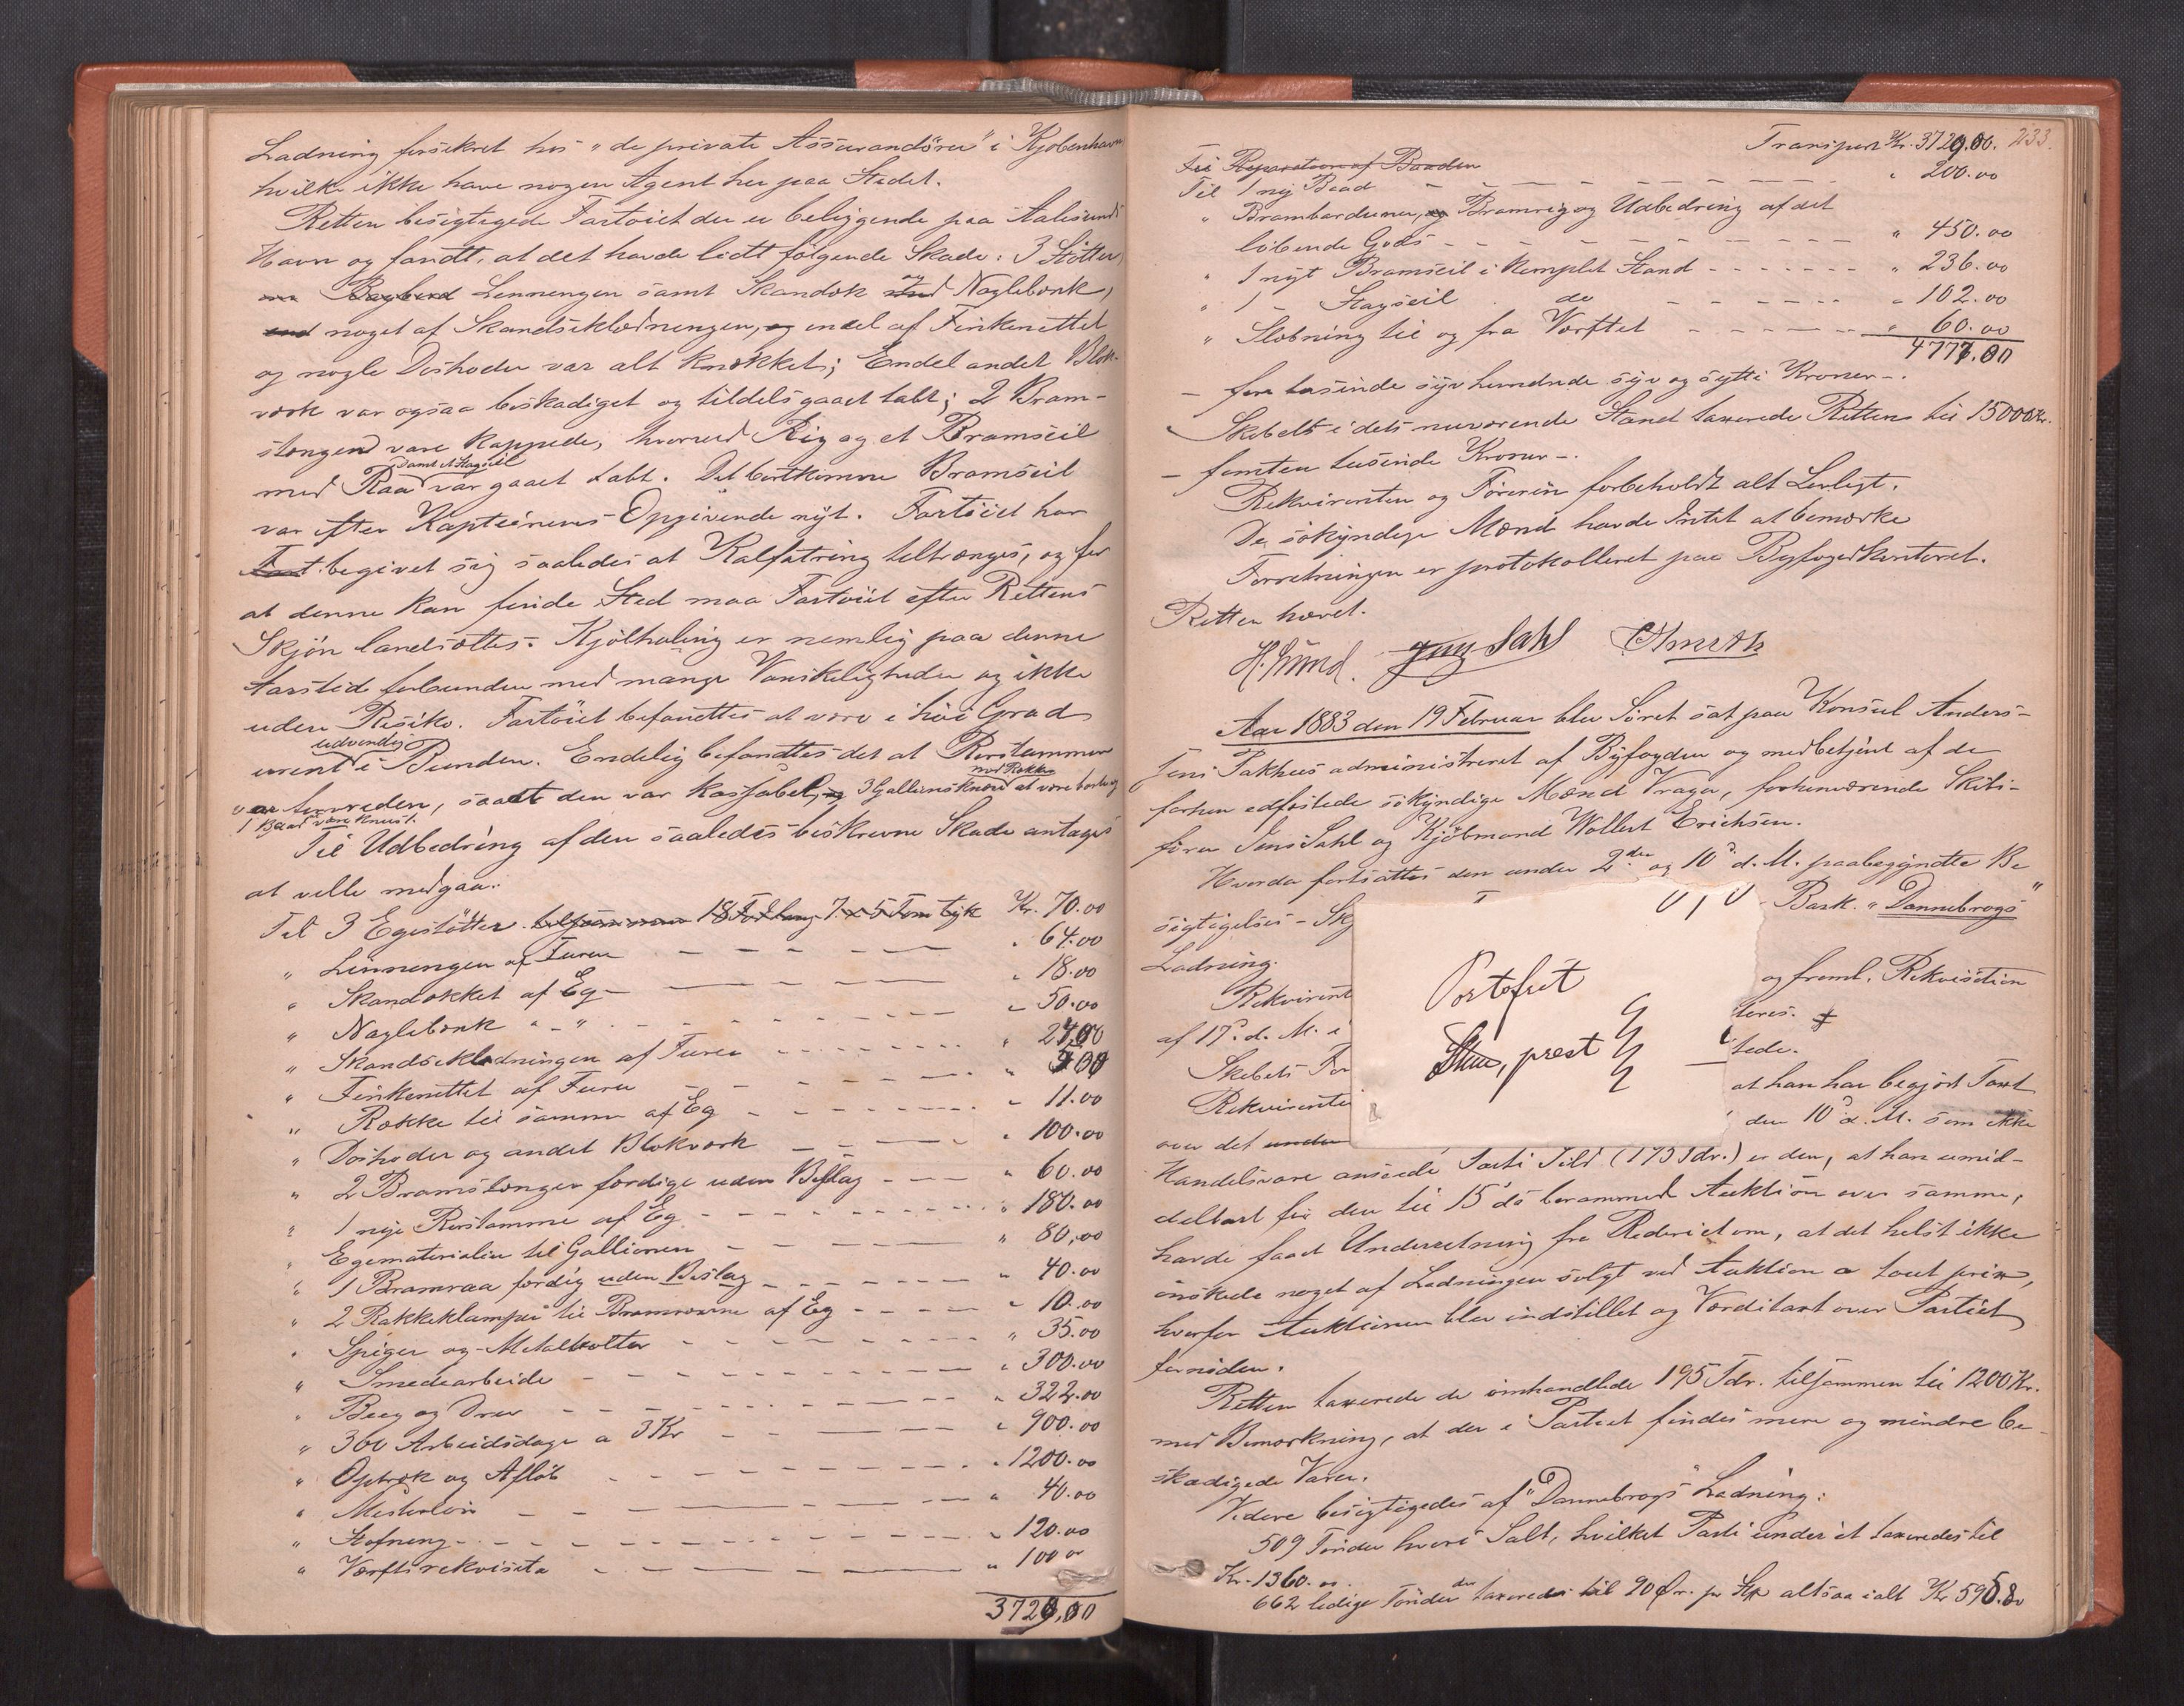 Ladning forsikret hos "de private Assurandörer" i Kjöbenhavn
hvilke ikke have nogen Agent her paa Stedet.
Retten besigtigede Fartöiet der er beliggende paa Aalesunds
Havn og fandt, at det havde lidt fölgende Skade: 3 Stötter,
Bagbord Lenningen samt Skandæk og Naglebænk,
noget af Skandseklædningen, og endel af Finkenettet
og nogle Doshoder var alt knækket; Endel andet Blok-
værk var ogsaa beskadiget og tildels gaaet tabt; 2 Bram-
stænger vare kappede, hvorved Rig og et Bramseil
med Raa samt et Stagseil var gaaet tabt. Det bortkomne Bramseil
var efter Kapteinens Opgivende nyt. Fartöiet har
begivet sig saaledes at Kalfatring tiltrænges, og før
at denne kan finde Sted maa Fartöiet efter Rettens
Skjön landsættes. Kjölhaling er nemlig paa denne
Aarstid forbunden med mange Vanskeligheder og ikke
uden Risiko. Fartöiet befandtes at være i höi Grad
udvendig
urent i Bunden. Endelig befandtes det at Rorstammen
med Rækker
var forvreden, saa at den var kassabel, 3 Gallionsknær at være borte og
1 Baad være knust.
Til Udbedring af den saaledes beskrevne Skade antages
at ville medgaa:
Til 3 Egestötter 18 Fod lang 7 x 5 Tom tyk Kr. 70.00
" Lenningen af Furu " 64.00
" Skandækket af Eg " 18.00
" Naglebænk " - " " 50.00
" Skandseklædningen af Furu " 24,00
" Finkenettet af Furu "
" Række til samme af Eg " 11.00
" Doshoder og andet Blokværk " 100.00
" 2 Bramstænger færdige uden Beslag " 60.00
" 1 nye Rorstamme af Eg " 180.00
" Egematerialier til Gallionen " 80,00
" 1 Bramraa færdig uden Beslag " 40.00
" 2 Rakkeklamper til Bramraaerne af Eg " 10.00
" Spiger og Metalbolter " 35.00
" Smedearbeide " 300.00
" Beeg og Drev " 322.00
" 300 Arbeidsdage a 3 Kr " 900.00
" Optræk og Aflöb " 1200.00
" Mesterlön " 40.00
" Stofning " 120.00
" Værftsrekvisita " 100 00
3729,00
233.
Transport Kr. 3729.00.
Til Reparation af Baaden
Til 1 ny Baad " 200.00
" Brambarduner, Bramrig og Udbedring af det
löbende Gods " 450.00
" 1 nyt Bramseil i komplet Stand " 236.00
" 1 - Stagseil do " 102.00
" Slæbning til og fra Værftet " 60.00
4777.00
- fire tusinde syv hundrede syv og sytti Kroner -.
Skibets i dets nuværende Stand taxerede Retten til 15000 Kr.
- femten tusinde Kroner -.
Rekvirenten og Föreren forbeholdt alt Lovligt.
De sökyndige Mænd havde Intet at bemærke
Forretningen er protokolleret paa Byfogedkontoret.
Retten hævet.
H. Lund. Jens Dahl
Aar 1883 den 19 Februar blev Söret sat paa Konsul Anders-
sens Pakhus administreret af Byfogden og medbetjent af de
forhen edfæstede sökyndige Mænd Vrager, forhenværende Skibs-
förer Jens Dahl og Kjöbmand Wollert Erichsen.
Hvorda fortsattes den under 2den og 10d d. M. paabegyndte Be
sigtigelses - Sk Bark. "Dannebrogs"
Ladning.
Rekvirent og freml. Rekvisition
af 17d. d. M.
Skibets
Rekvirente at han har begjært Taxt
over det den 10d d. M. som ikke
Handelsvare ansede Parti Sild (195 Tdr.) er den, at han umid-
delbart før den til 15d ds berammed Auktion over samme,
havde faaet Underretning fra Rederiet om, at det helst ikke
önskede noget af Ladningen solgt ved Auktion a tout prix,
hvorfor Auktionen blev indstillet og Værditaxt over Partiet
fornöden.
Retten taxerede de omhandlede 195 Tdr. tilsammen til 1200 Kr.
med Bemærkning, at der i Partiet findes mere og mindre be-
skadigede Varer.
Videre besigtigedes af "Dannebrogs" Ladning:
509 Tönder hvori Salt, hvilket Parti under et taxeredes til
Kr. 1360.00.
662 ledige Tönder der taxeredes til 90 Öre pr Stk altsaa ialt Kr 595.80
Portofrit
Stue, prest